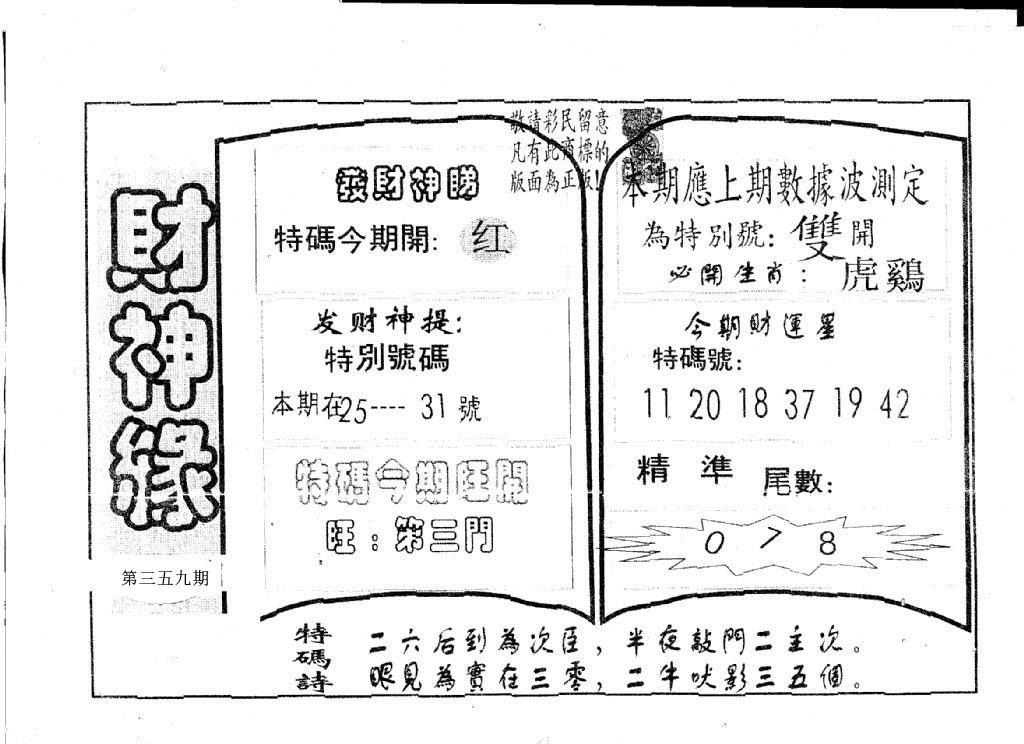 財神緣
第三五九期
敬請彩民留意
凡有此商標的
版面為正版!
發財神睇
特碼今期開: 红
发财神提:
特別號碼
本期在25----31號
特碼今期旺開
旺:第三門
本期應上期數據波測定
為特別號: 雙開
必開生肖: 虎鷄
今期財運星
特碼號:
11 20 18 37 19 42
精準 尾數:
0 7 8
特碼詩
二六后到為次臣,半夜敲門二主次。
眼見為實在三零,二牛吠影三五個。